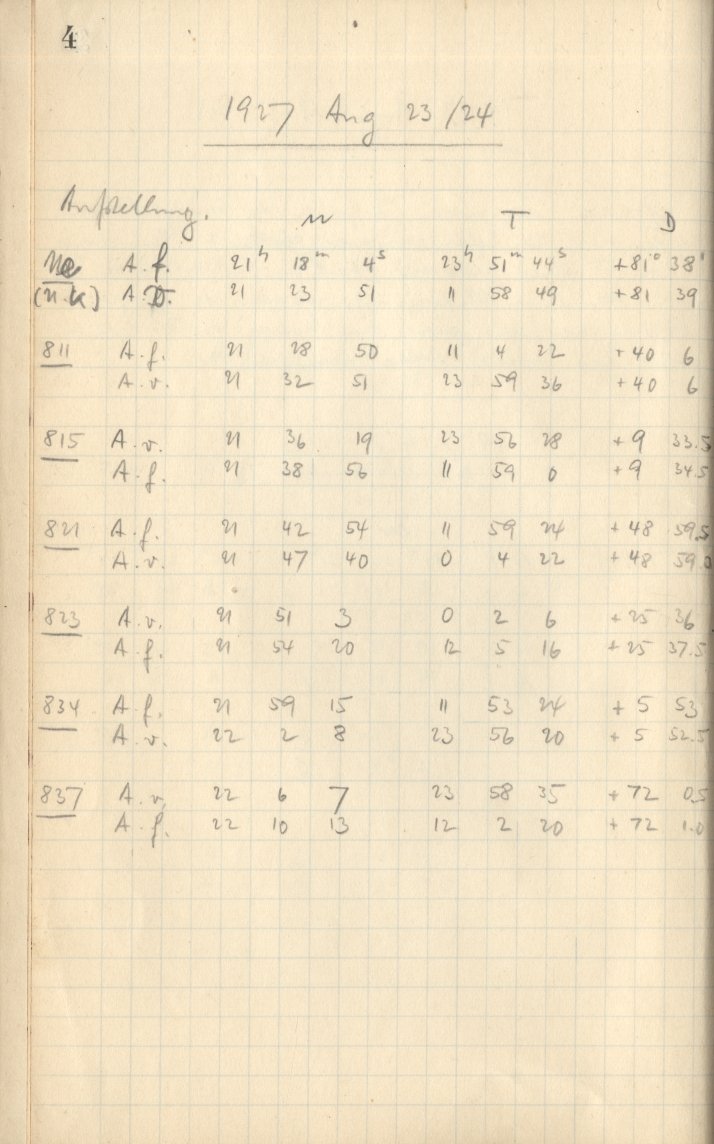 4
1927 Aug 23/24
Aufstellung. u T D
A.f. 21h 18m 4s 23h 51m 44s +81° 38'
(u.K) A.v. 21 23 51 11 58 49 +81 39
811 A.f. 21 28 50 11 4 22 +40 6
A.v. 21 32 51 23 59 36 +40 6
815 A.v. 21 36 19 23 56 28 +9 33.5
A.f. 21 38 56 11 59 0 +9 34.5
821 A.f. 21 42 54 11 59 24 +48 59.5
A.v. 21 47 40 0 4 22 +48 59.0
823 A.v. 21 51 3 0 2 6 +25 36
A.f. 21 54 20 12 5 16 +25 37.5
834 A.f. 21 59 15 11 53 24 +5 53
A.v. 22 2 8 23 56 20 +5 52.5
837 A.v. 22 6 7 23 58 35 +72 0.5
A.f. 22 10 13 12 2 20 +72 1.0